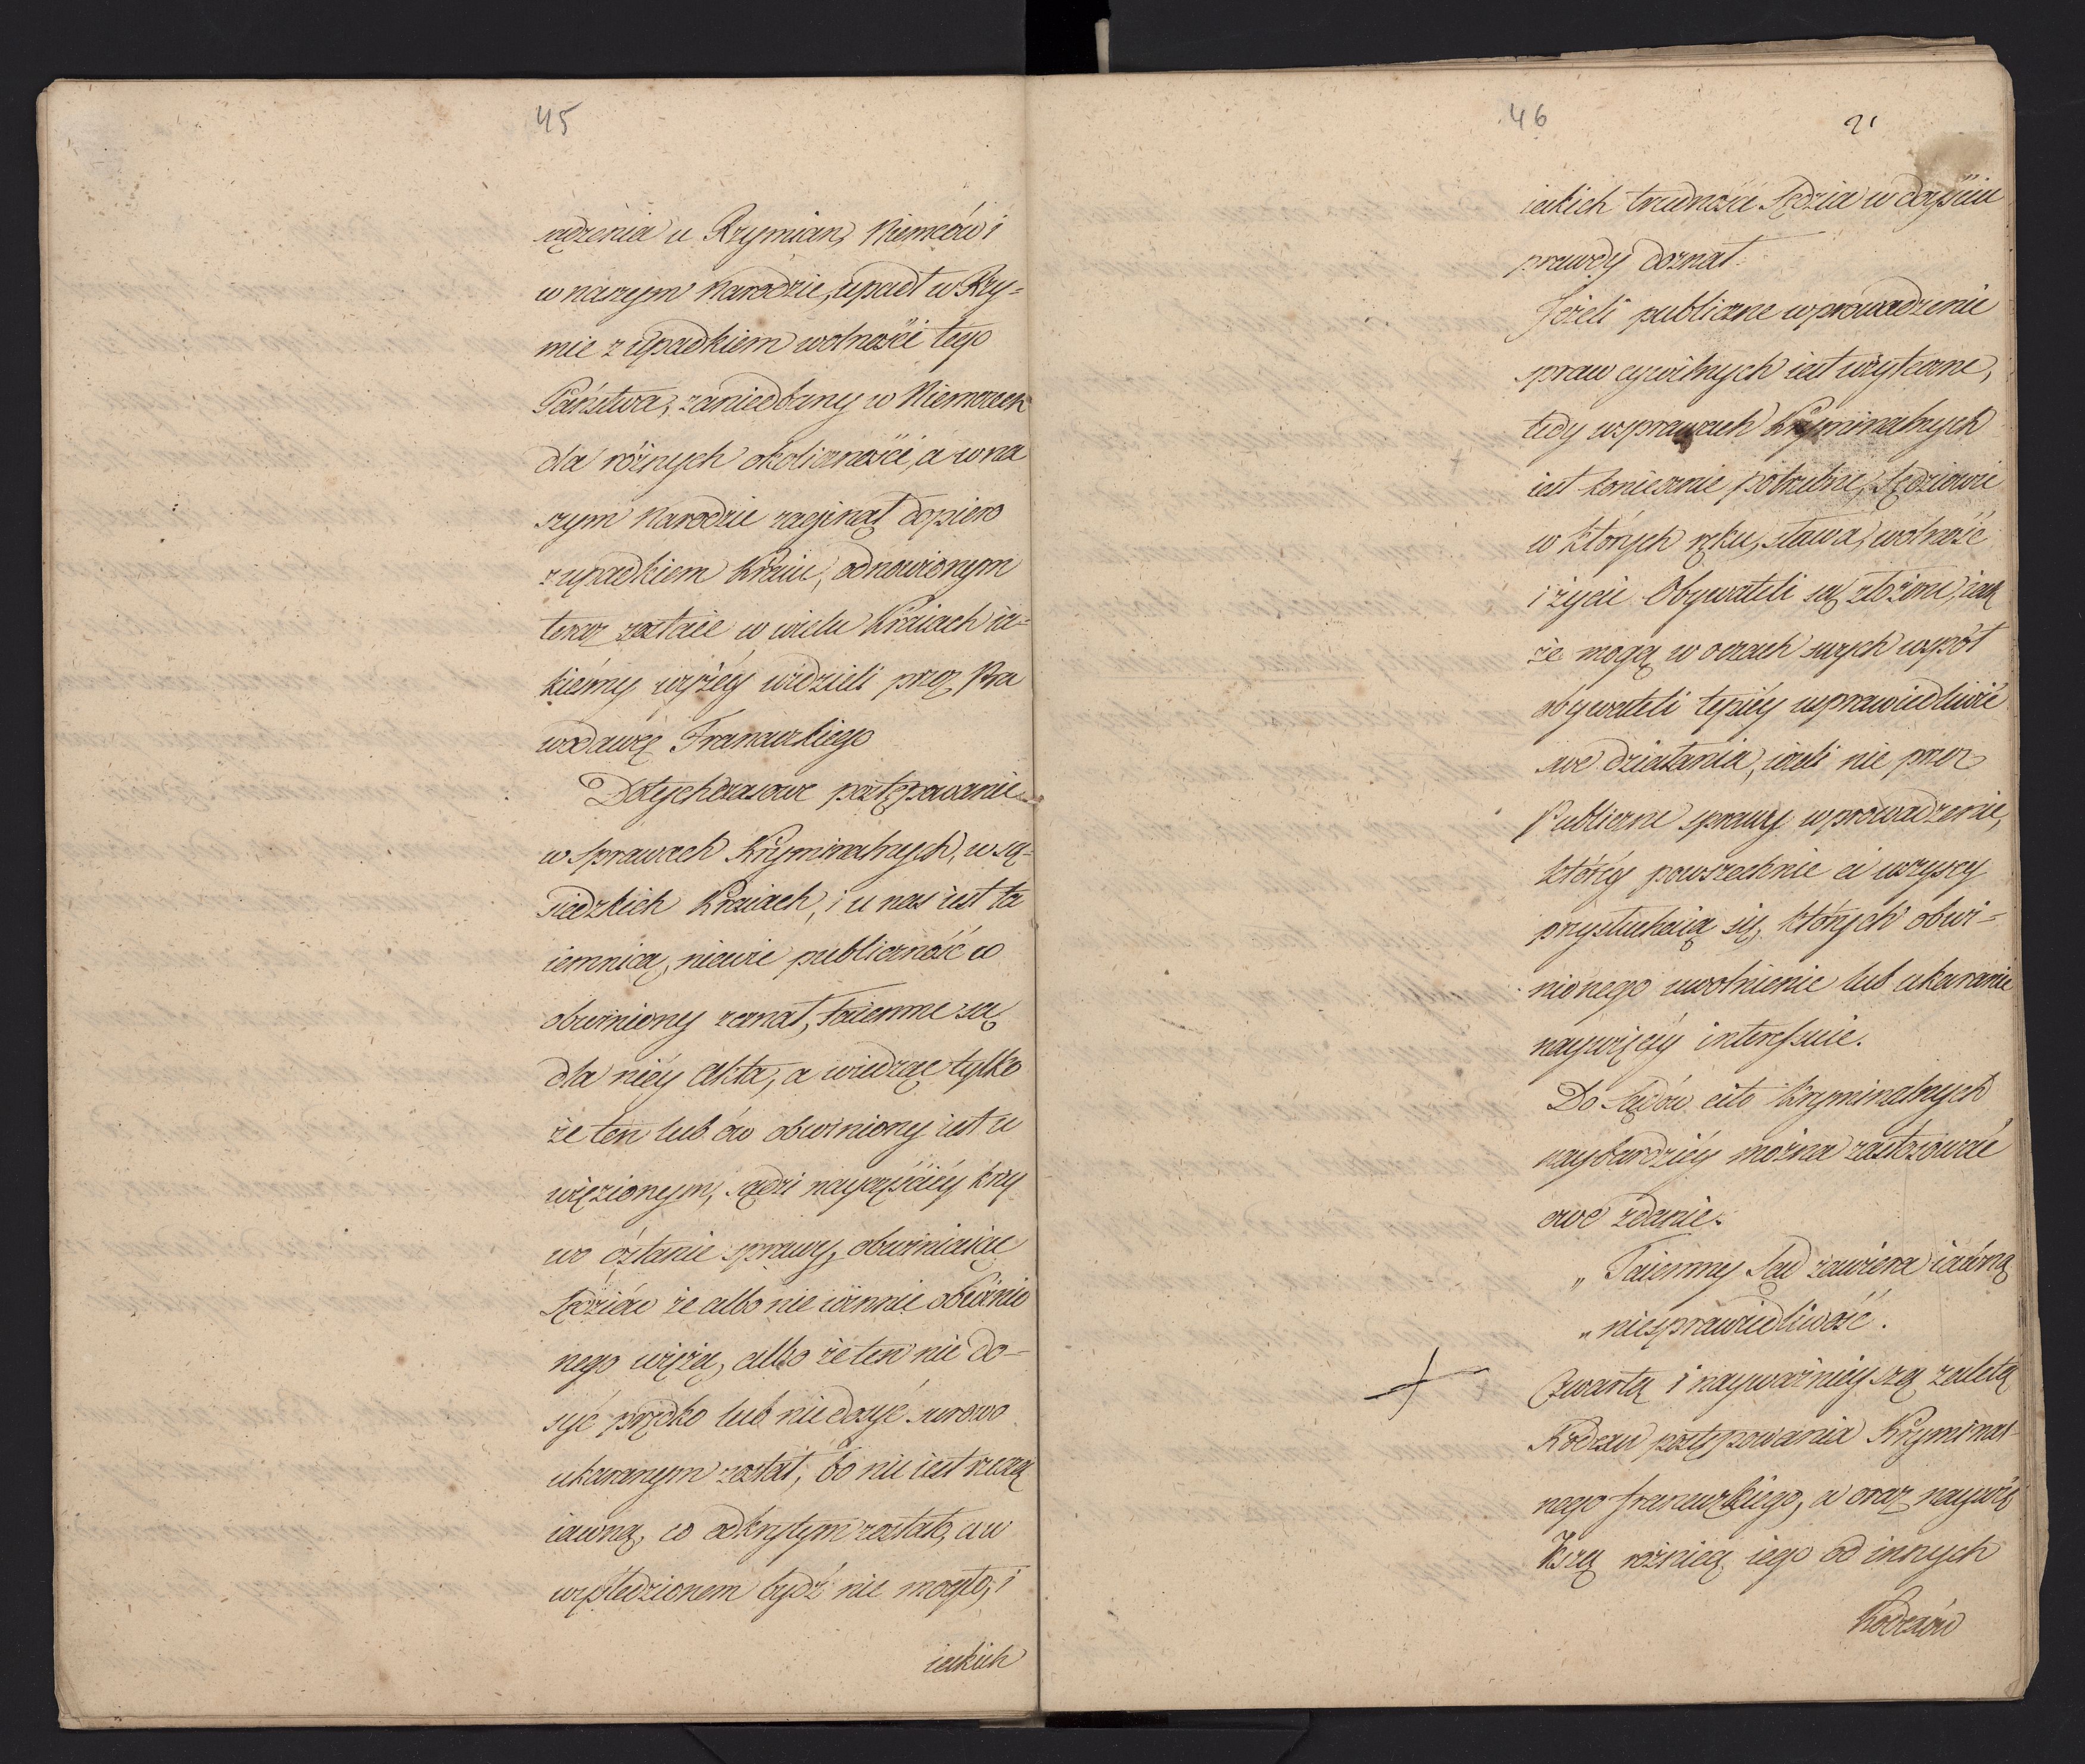 45
sądzenia u Rzymian, Niemców i
w naszym Narodzie, upadł w Rzy=
mie z upadkiem wolności tego
Państwa, zaniedbany w Niemczech
dla różnych okoliczności, a w na
szym Narodzie zaginął dopiero
z upadkiem Kraiu, odnowionym
teraz zostaie w wielu Kraiach ia=
kieśmy wyżéy widzieli przez Pra
wodawcę Francuzkiego
Dotychczasowe postępowanie
w sprawach Kryminalnych, w są=
siedzkich Kraiach, i u nas iest ta
iemnicą, niewie publiczność co
obwiniony zeznał, taiemne są
dla niéy Akta, a wiedząc tylko
że ten lub ów obwiniony iest u
więzionym, sądzi nayczęściéy krzy
wo o stanie sprawy, obwiniaiąc
Sędziów że albo nie winnie obwinio
nego więżą, albo że ten nie do-
syć prędko lub nie dosyć surowo
ukaranym został, bo nie iest rzeczą
iawną, co odkrytym zostało, a co
wyśledzionem bydź nie mogło, i
iakich
46
21
iakich trudności Sędzia w doyściu
prawdy doznał.
Jeżeli publiczne wprowadzenie
spraw cywilnych iest użyteczne,
tedy w sprawach Kryminalnych
iest koniecznie potrzebne, Sędziowie
w których ręku, sława, wolność
i życie Obywateli są złożone, iak
że mogą w oczach swych współ
obywateli lepiéy usprawiedliwić
swe działania, ieżeli nie przez
Publiczne sprawy wprowadzenie,
któréy powszechnie ci wszyscy
przysłuchaią się, których obwi=
nionego uwolnienie lub ukaranie
naywięcéy interessuie.
Do Sądów cito Kryminalnych
naybardziéy można zastosować
owe zdanie.
„ Taiemny Sąd zawiera iawną
„ niesprawiedliwość.
Czwartą i nayważnieyszą zaletą
Kodexu postępowania Kryminal-
nego francuzkiego, a oraz naywię
kszą różnicą iego od innych
Kodexów